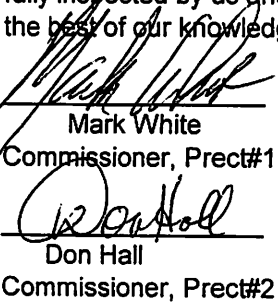 fully inspected by us and
the best of our knowledge
Mark White
Mark White
Commissioner, Prect#1
Don Hall
Don Hall
Commissioner, Prect#2